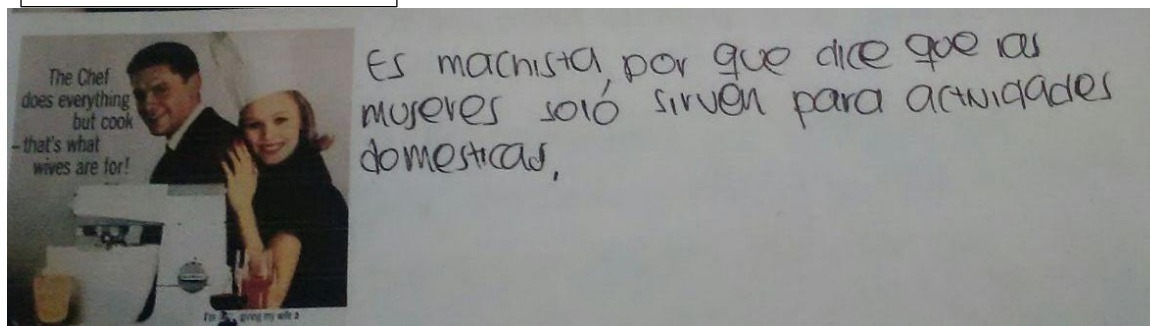 The Chef
does everything
but cook
– that's what
wives are for!
I'm giving my wife a
Es machista, por que dice que las
mujeres soló sirven para actividades
domesticas,